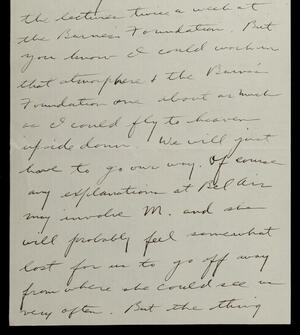 the lectures twice a week at
the Barnes Foundation. But
you know I could work in
that atmosphere & the Barnes
Foundation one about as much
as I could fly to heaven
upside down. We will just
have to go our way. Of course
any explanations at Bel Air
may involve M. and she
will probably feel somewhat
lost for us to go off away
from where she could see us
very often. But the thing